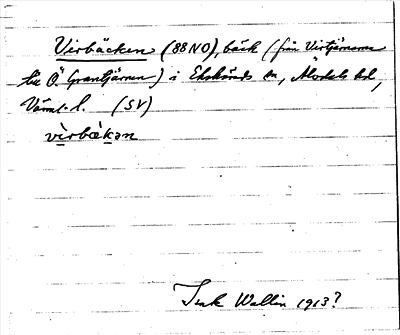 Virbäcken (88 NO), bäck (från Virtjärnarna
till Ö Grantjärnen) i Ekshärads sn, Älvdals hd,
Värml. l. (SV)
vìrbækan
Wallin 1913?